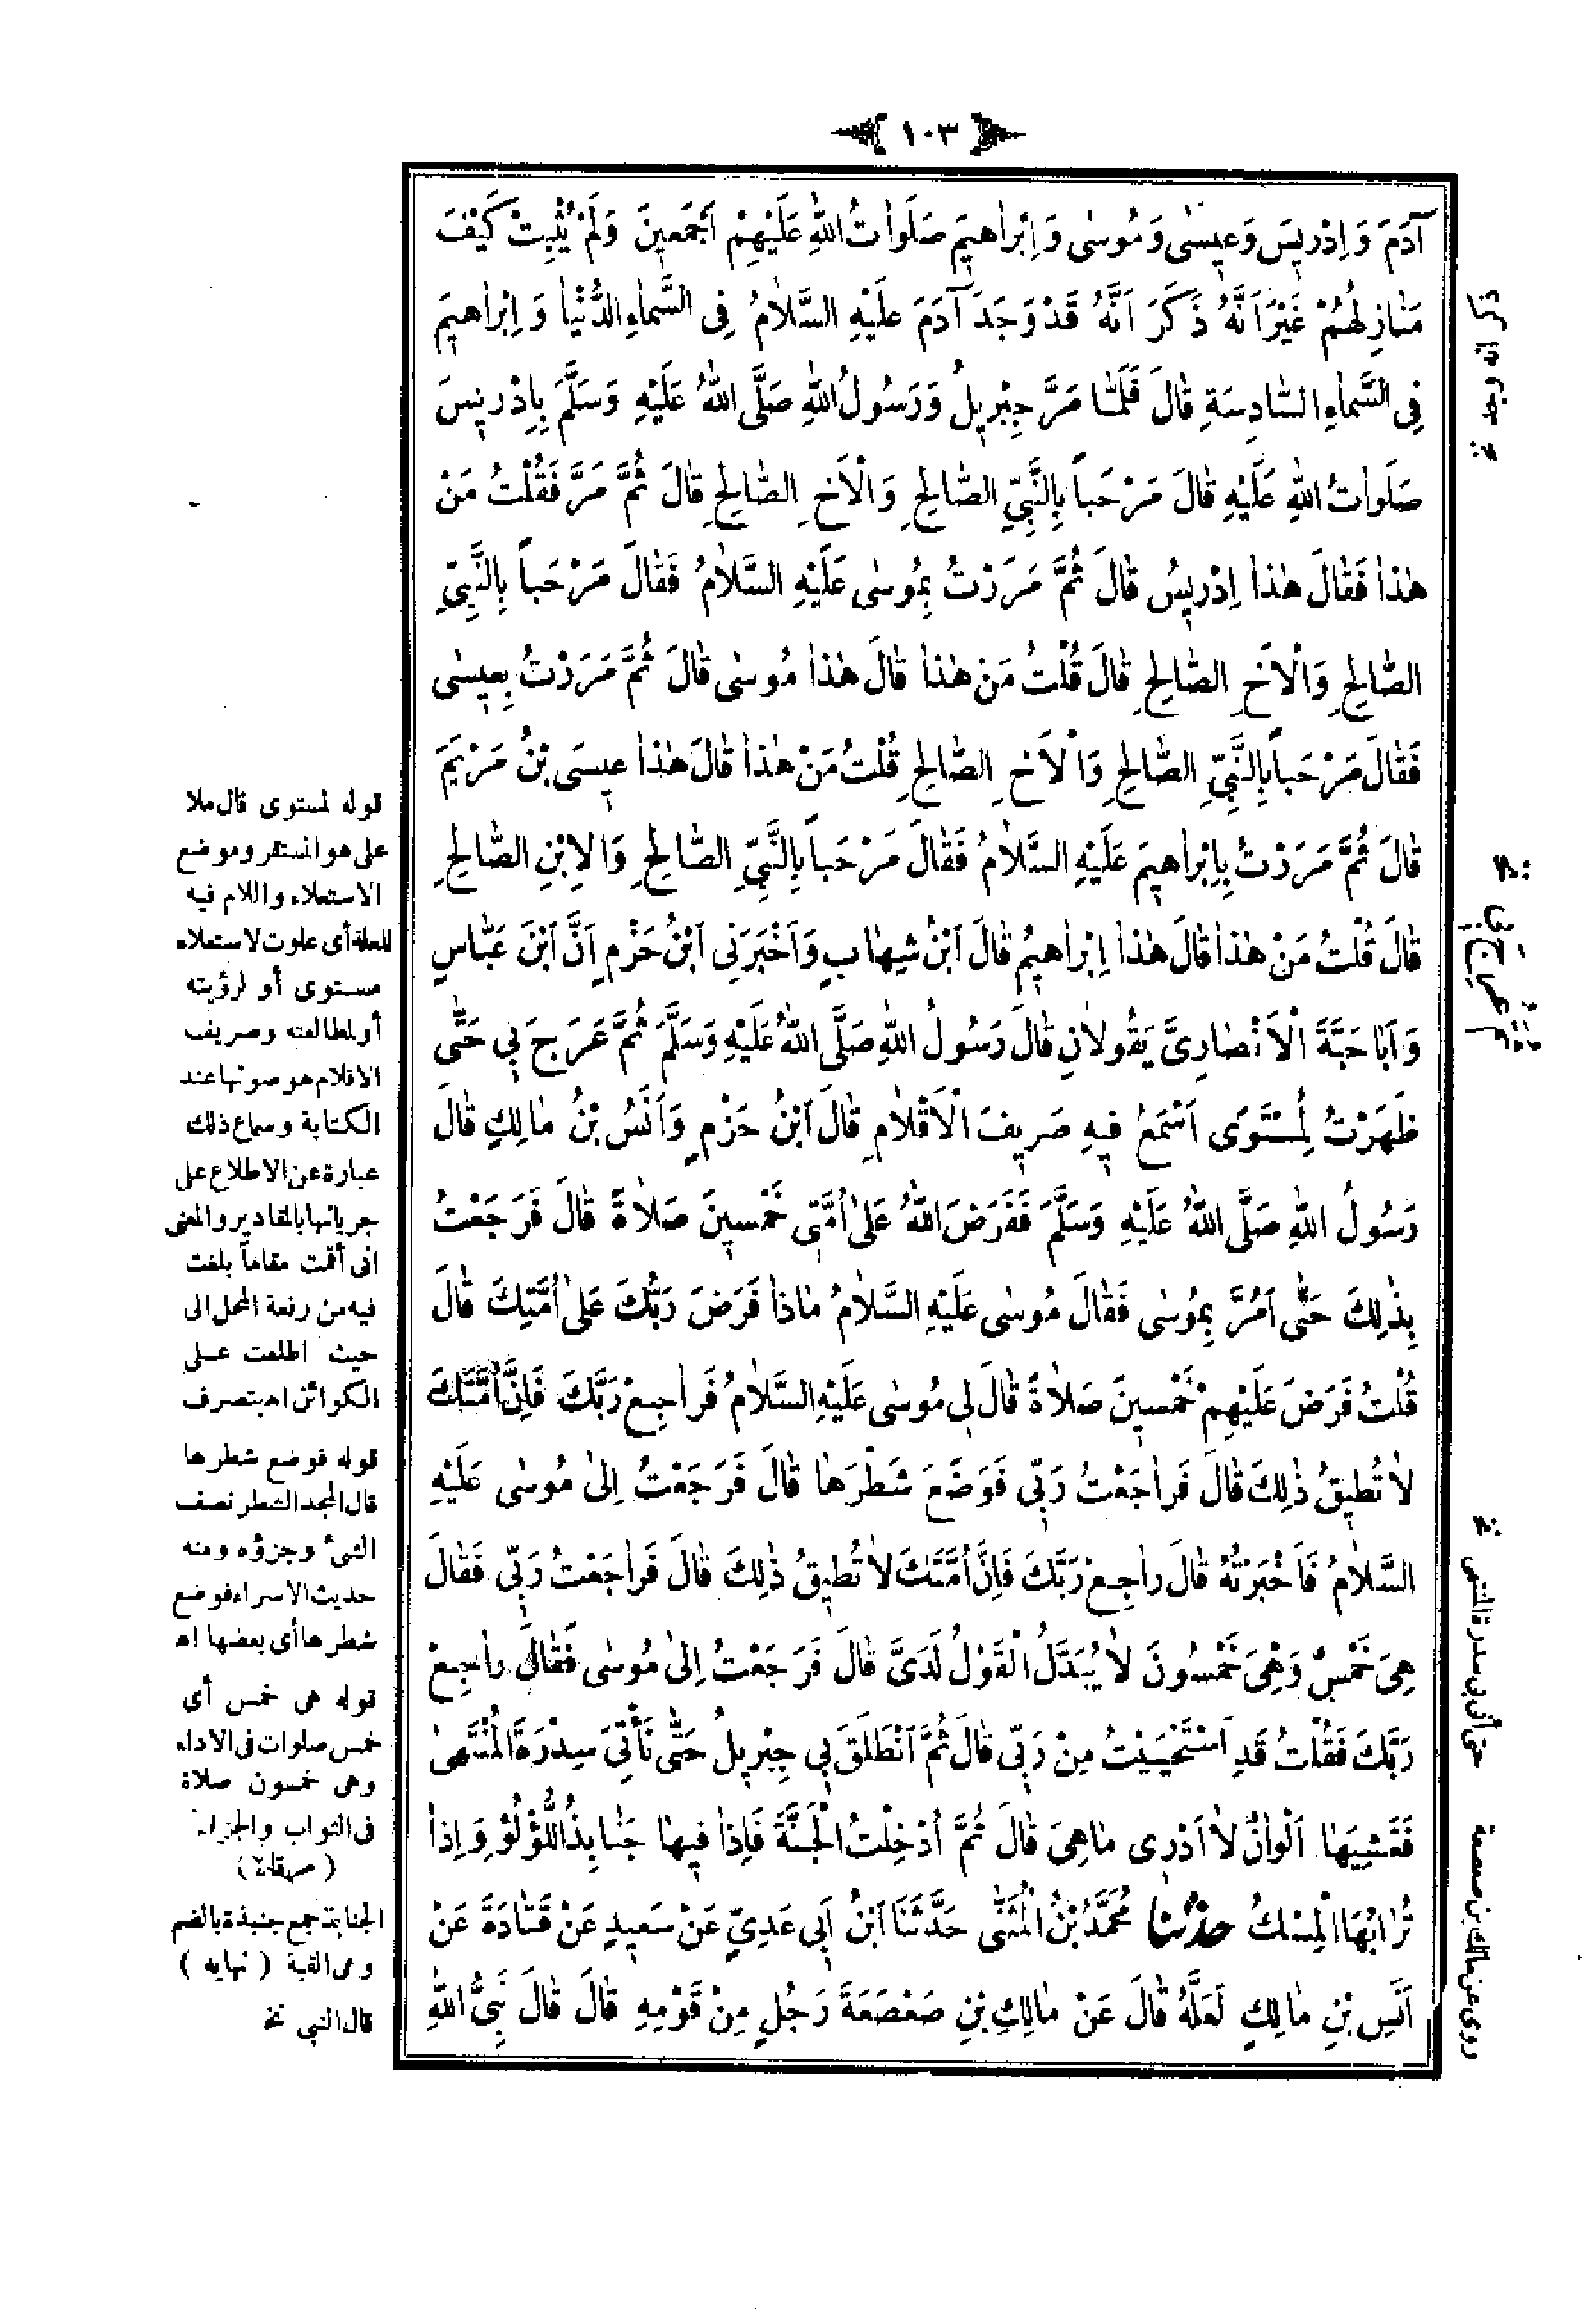 ١٠٣
آدَمَ وَاِدْرِيسَ وَعِيسٰى وَمُوسٰى وَاِبْرَاهِيمَ صَلَوَاتُ اللّٰهِ عَلَيْهِمْ اَجْمَعِينَ وَلَمْ يُثْبِتْ كَيْفَ
مَنَازِلُهُمْ غَيْرَ اَنَّهُ ذَكَرَ اَنَّهُ قَدْ وَجَدَ آدَمَ عَلَيْهِ السَّلَامُ فِى السَّمَاءِ الدُّنْيَا وَ اِبْرَاهِيمَ
فِى السَّمَاءِ السَّادِسَةِ قَالَ فَلَمَّا مَرَّ جِبْرِيلُ وَرَسُولُ اللّٰهِ صَلَّى اللّٰهُ عَلَيْهِ وَسَلَّمَ بِاِدْرِيسَ
صَلَوَاتُ اللّٰهِ عَلَيْهِ قَالَ مَرْحَباً بِالنَّبِىِّ الصَّالِحِ وَالْاَخِ الصَّالِحِ قَالَ ثُمَّ مَرَّ فَقُلْتُ مَنْ
هٰذَا فَقَالَ هٰذَا اِدْرِيسُ قَالَ ثُمَّ مَرَرْتُ بِمُوسٰى عَلَيْهِ السَّلَامُ فَقَالَ مَرْحَباً بِالنَّبِىِّ
الصَّالِحِ وَالْاَخِ الصَّالِحِ قَالَ قُلْتُ مَنْ هٰذَا قَالَ هٰذَا مُوسٰى قَالَ ثُمَّ مَرَرْتُ بِعِيسٰى
فَقَالَ مَرْحَباً بِالنَّبِىِّ الصَّالِحِ وَالْاَخِ الصَّالِحِ قُلْتُ مَنْ هٰذَا قَالَ هٰذَا عِيسَى بْنُ مَرْيَمَ
قَالَ ثُمَّ مَرَرْتُ بِاِبْرَاهِيمَ عَلَيْهِ السَّلَامُ فَقَالَ مَرْحَباً بِالنَّبِىِّ الصَّالِحِ وَالِابْنِ الصَّالِحِ
قَالَ قُلْتُ مَنْ هٰذَا قَالَ هٰذَا اِبْرَاهِيمُ قَالَ ابْنُ شِهَابٍ وَاَخْبَرَنِى ابْنُ حَزْمٍ اَنَّ ابْنَ عَبَّاسٍ
وَاَبَا حَبَّةَ الْاَنْصَارِىَّ يَقُولَانِ قَالَ رَسُولُ اللّٰهِ صَلَّى اللّٰهُ عَلَيْهِ وَسَلَّمَ ثُمَّ عَرَجَ بِى حَتَّى
ظَهَرْتُ لِمُسْتَوًى اَسْمَعُ فِيهِ صَرِيفَ الْاَقْلَامِ قَالَ ابْنُ حَزْمٍ وَاَنَسُ بْنُ مَالِكٍ قَالَ
رَسُولُ اللّٰهِ صَلَّى اللّٰهُ عَلَيْهِ وَسَلَّمَ فَفَرَضَ اللّٰهُ عَلٰى اُمَّتِى خَمْسِينَ صَلَاةً قَالَ فَرَجَعْتُ
بِذٰلِكَ حَتَّى اَمُرَّ بِمُوسٰى فَقَالَ مُوسٰى عَلَيْهِ السَّلَامُ مَاذَا فَرَضَ رَبُّكَ عَلٰى اُمَّتِكَ قَالَ
قُلْتُ فَرَضَ عَلَيْهِمْ خَمْسِينَ صَلَاةً قَالَ لِى مُوسٰى عَلَيْهِ السَّلَامُ فَرَاجِعْ رَبَّكَ فَاِنَّ اُمَّتَكَ
لَا تُطِيقُ ذٰلِكَ قَالَ فَرَاجَعْتُ رَبِّى فَوَضَعَ شَطْرَهَا قَالَ فَرَجَعْتُ اِلٰى مُوسٰى عَلَيْهِ
السَّلَامُ فَاَخْبَرْتُهُ قَالَ رَاجِعْ رَبَّكَ فَاِنَّ اُمَّتَكَ لَا تُطِيقُ ذٰلِكَ قَالَ فَرَاجَعْتُ رَبِّى فَقَالَ
هِىَ خَمْسٌ وَهِىَ خَمْسُونَ لَا يُبَدَّلُ الْقَوْلُ لَدَىَّ قَالَ فَرَجَعْتُ اِلٰى مُوسٰى فَقَالَ رَاجِعْ
رَبَّكَ فَقُلْتُ قَدِ اسْتَحْيَيْتُ مِنْ رَبِّى قَالَ ثُمَّ انْطَلَقَ بِى جِبْرِيلُ حَتَّى نَأْتِىَ سِدْرَةَ الْمُنْتَهٰى
فَغَشِيَهَا اَلْوَانٌ لَا اَدْرِى مَاهِىَ قَالَ ثُمَّ اُدْخِلْتُ الْجَنَّةَ فَاِذَا فِيهَا جَنَابِذُ اللُّؤْلُؤِ وَ اِذَا
تُرَابُهَا الْمِسْكُ حدثنا مُحَمَّدُ بْنُ الْمُثَنَّى حَدَّثَنَا ابْنُ اَبِى عَدِىٍّ عَنْ سَعِيدٍ عَنْ قَتَادَةَ عَنْ
اَنَسِ بْنِ مَالِكٍ لَعَلَّهُ قَالَ عَنْ مَالِكِ بْنِ صَعْصَعَةَ رَجُلٍ مِنْ قَوْمِهِ قَالَ قَالَ نَبِىُّ اللّٰهِ
قوله لمستوى قال ملا
على هو المستقر وموضع
الاستعلاء واللام فيه
للعلة أى علوت لاستعلاء
مستوى أو لرؤيته
أو لمطالعته وصريف
الاقلام هو صوتها عند
الكتابة وسماع ذلك
عبارة عن الاطلاع على
جريانها بالمقادير والمعنى
انى أقمت مقاماً بلغت
فيه من رفعة المحل الى
حيث اطلعت على
الكوائن اهـ بتصرف
قوله فوضع شطرها
قال المجد الشطر نصف
الشئ وجزؤه ومنه
حديث الاسراء فوضع
شطرها أى بعضها اهـ
قوله هى خمس أى
خمس صلوات فى الاداء
وهى خمسون صلاة
فى الثواب والجزاء
(مرقاة)
الجنابذ جمع جنبذة بالضم
وهى القبة (نهايه)
قال النبي نخ
ثُمَّ عُرِجَ بِى نخ
حتى أتى بى سدرة المنتهى نخ
روى عن مالك بن صعصعة